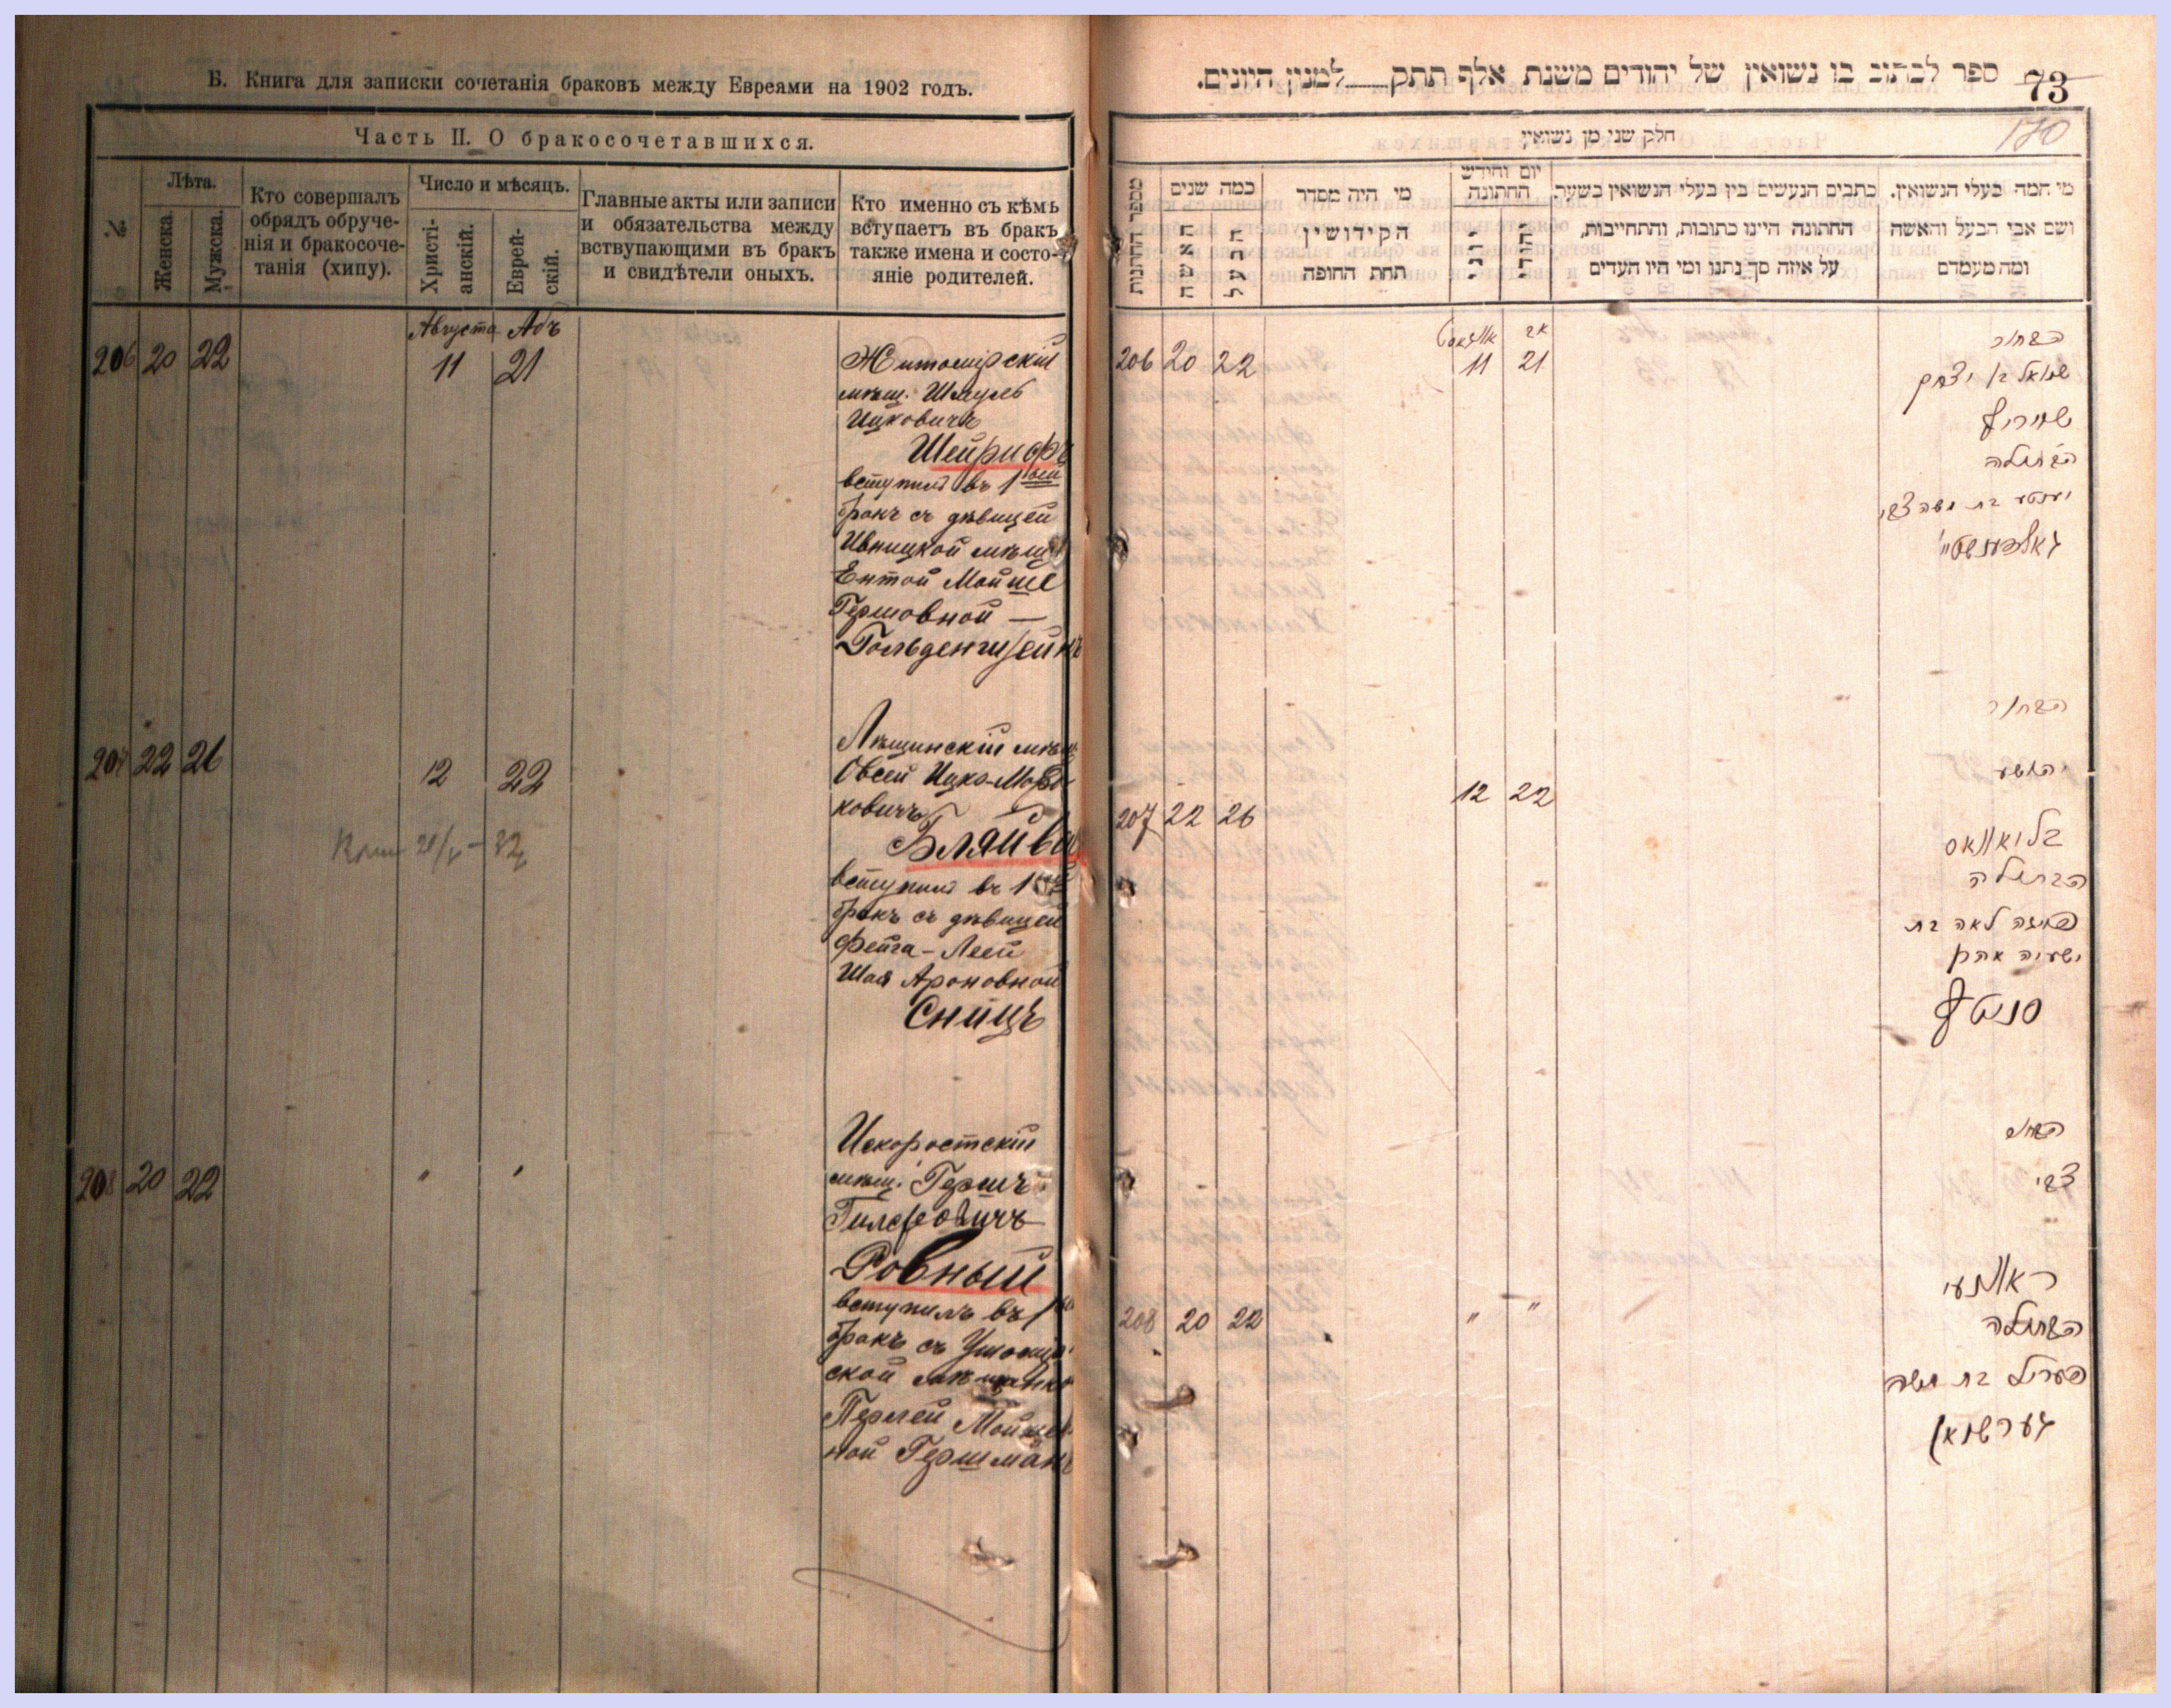 Б. Книга для записки сочетанія браковъ между Евреями на 1902 годъ.
Часть II. О бракосочетавшихся.
№
Лѣта.
Женска.
Мужска.
Кто совершалъ
обрядъ обруче-
нія и бракосоче-
танія (хипу).
Число и мѣсяцъ.
Христі-
анскій.
Еврей-
скій.
Главные акты или записи
и обязательства между
вствупающими въ бракъ
и свидѣтели оныхъ.
Кто именно съ кѣмъ
вступаетъ въ бракъ
также имена и состо-
яніе родителей.
Августа Абъ
206 20 22 11 21
Житомирскій
мѣщ. Шмуль
Ицковичъ
Шейрифъ
вступил въ 1
бракъ съ дѣвицей
Ивницкой мѣщ
Ентой Мойше
Гершовной —
207 22 26 12 22
Овсей Ицко-Мор
ковичъ
вступил въ 1
бракъ съ дѣвицей
Фейга-Леей
Шая Ароновной
Сницъ
208 20 22 " "
Искоростскій
мѣщ. Гершъ
Ровный
вступилъ въ 1
бракъ съ Ушомир
ской мѣщанко
Перлей Мойше
ной Гершманъ
73
ספר לכתוב בו נשואין של יהודים משנת אלף תתק למנין היונים.
170
חלק שני מן נשואין
מספר החתונות
כמה שנים
האשה
הבעל
מי היה מסדר
הקידושין
תחת החופה
יום וחודש
החתונה
יוני
יהודי
כתבים הנעשים בין בעלי הנשואין בשעת
החתונה היינו כתובות, והתחייבות,
על איזה סך נתנו ומי היו העדים
מי המה בעלי הנשואין.
ושם אבי הבעל והאשה
ומה מעמדם
אוגוסט אב
206 20 22 11 21
הבחור
שמואל בן יצחק
שיריף
הבתולה
יענטע בת משה צבי
207 22 26 12 22
הבחור
יהושע
הבתולה
פייגה לאה בת
ישעיה אהרן
208 20 22 " "
הבחור
צבי
הבתולה
פעריל בת משה
גערשמאן